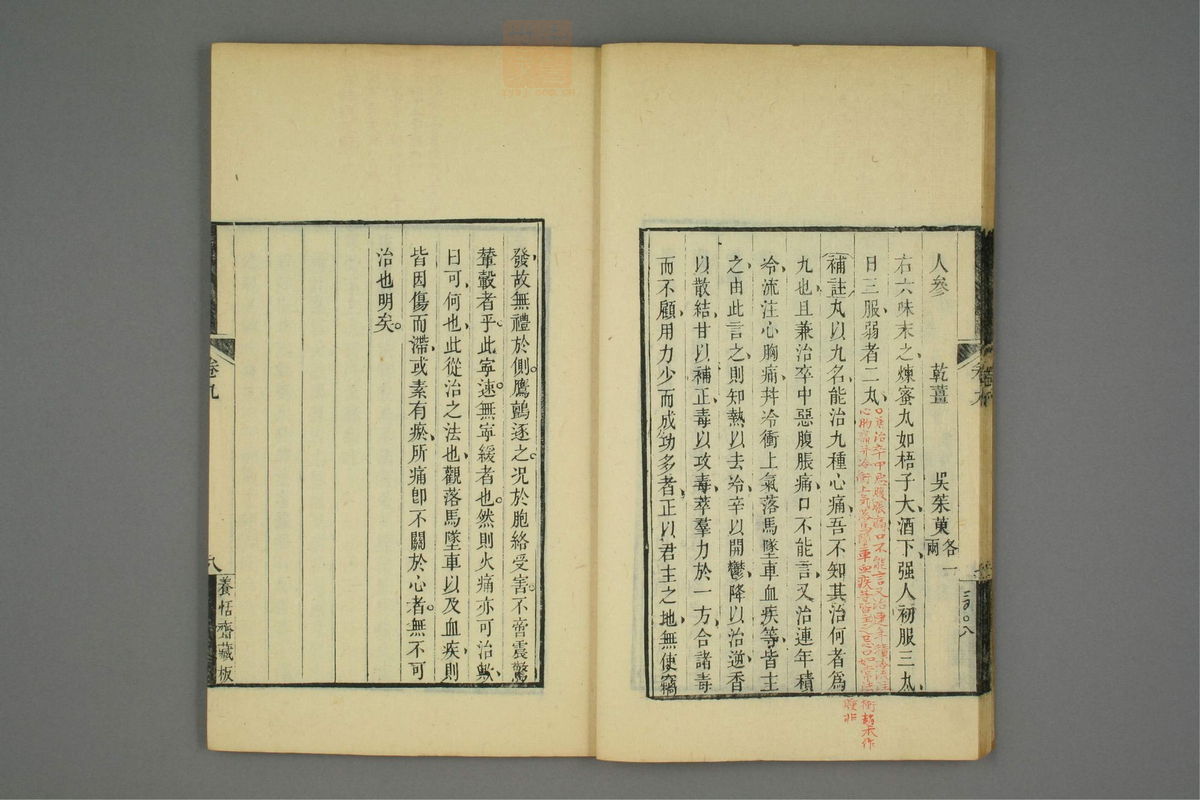 人參 乾薑 吳茱萸各一兩
右六味末之煉蜜丸如梧子大酒下强人初服三丸
日三服弱者二丸
口不能言又治連年積冷流注
心胸痛并冷衝上氣落馬墜車血疾等皆主之忌口如常法
衝趙本作
補註丸以九名能治九種心痛吾不知其治何者爲
九也且兼治卒中惡腹脹痛口不能言又治連年積
冷流注心胸痛并冷衝上氣落馬墜車血疾等皆主
之由此言之則知熱以去冷辛以開鬱降以治逆香
以散結甘以補正毒以攻毒萃羣力於一方合諸毒
而不顧用力少而成功多者正以君主之地無使竊
發故無禮於側鷹鸇逐之况於胞絡受害不啻震驚
輦轂者乎此寧速無寧緩者也然則火痛亦可治歟
曰可何也此從治之法也觀落馬墜車以及血疾則
皆因傷而滯或素有瘀所痛卽不關於心者無不可
治也明矣
卷九
八
養恬齋藏板